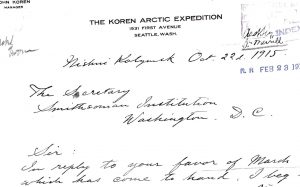 JOHN KOREN
MANAGER
THE KOREN ARCTIC EXPEDITION
1531 FIRST AVENUE
SEATTLE, WASH.
INDEX
Nishni Kolymsk Oct 22d 1915
FEB 23 19
The Secretary
Smithsonian Institution
Washington, D. C.
Sir:
In reply to your favor of March
which has come to hand. I beg